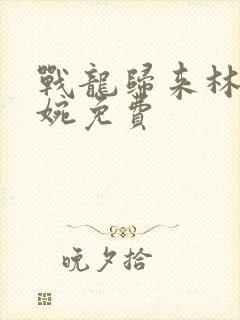 戰龍歸来林
婉免費
晚夕拾